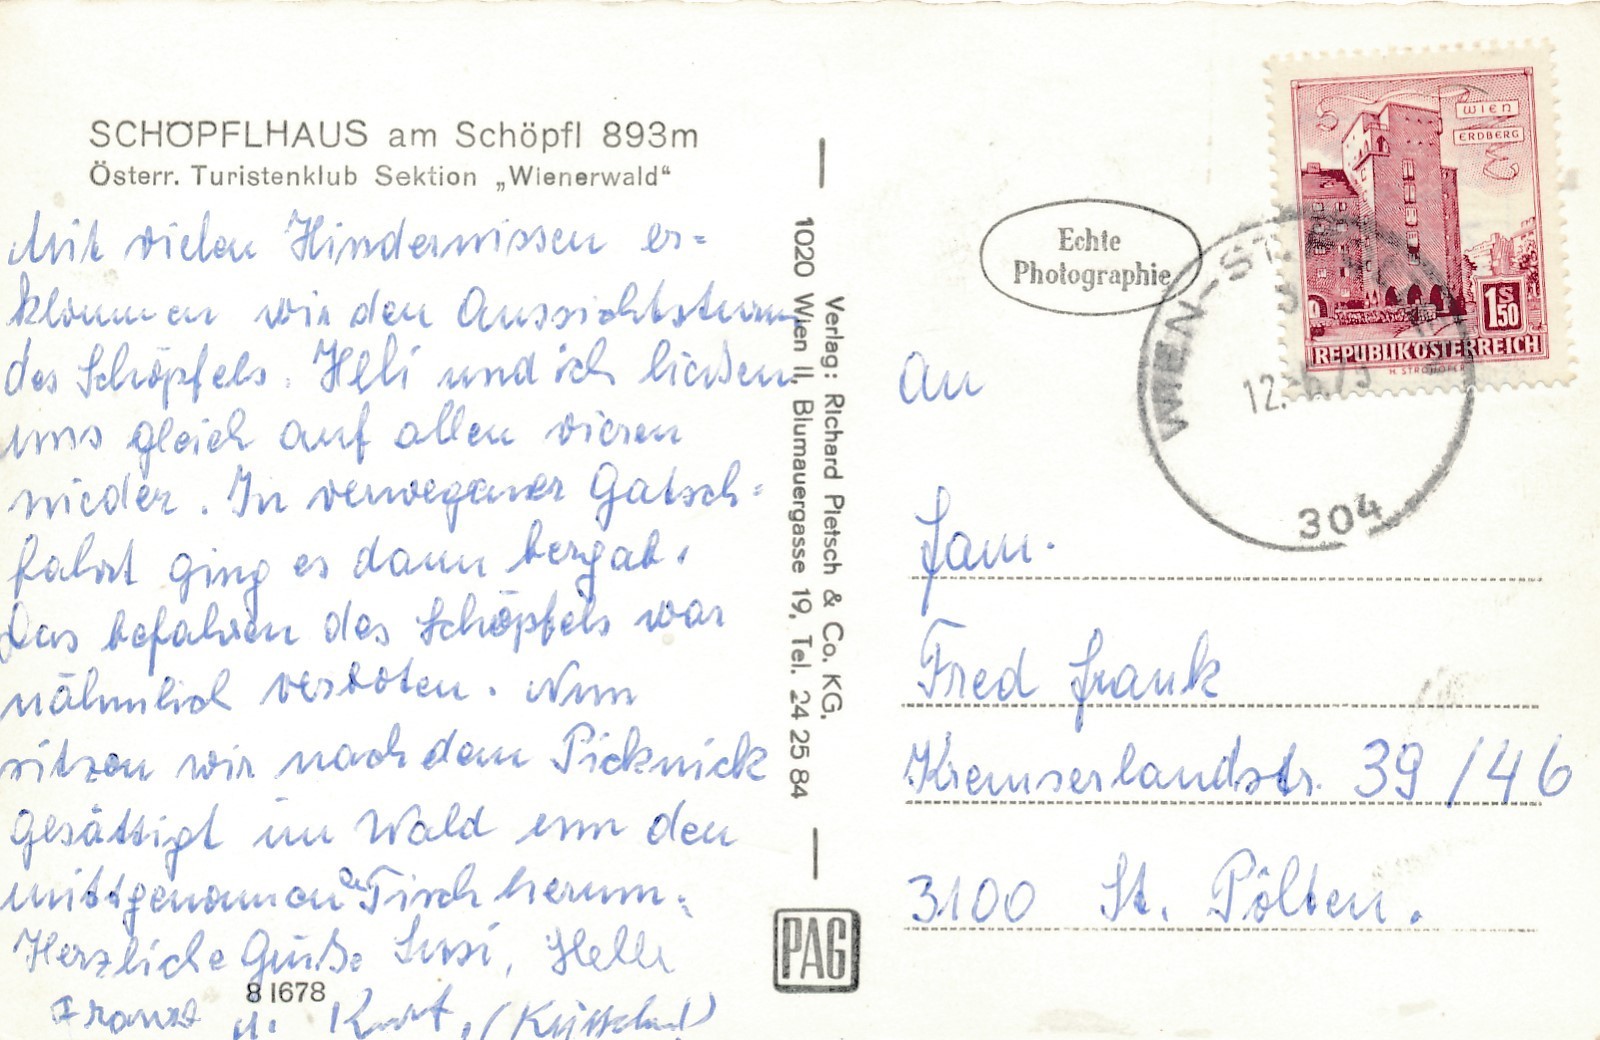 SCHÖPFLHAUS am Schöpfl 893m
Österr. Turistenklub Sektion „Wienerwald“
Mit vielen Hindernissen er=
klommen wir den Aussichtsturm
des Schöpfels. Helli und ich ließen
uns gleich auf allen vieren
nieder. In verwegener Gatsch=
fahrt ging es dann bergab.
Das befahren des Schöpfels war
nähmlich verboten. Nun
sitzen wir nach dem Picknick
gesättigt im Wald um den
mittgenommenen Tisch herum.
Herzliche Grüße Susi, Helli
Franz u. Kurt,
8 1678
Verlag: Richard Pietsch & Co. KG,
1020 Wien II, Blumauergasse 19, Tel. 24 25 84
PAG
Echte
Photographie
WIEN
ERDBERG
1S50
REPUBLIK ÖSTERREICH
H. STROHOFER
WIEN-ST.
12.
304
An
Fam.
Fred Frank
Kremserlandstr. 39/46
3100 St. Pölten.